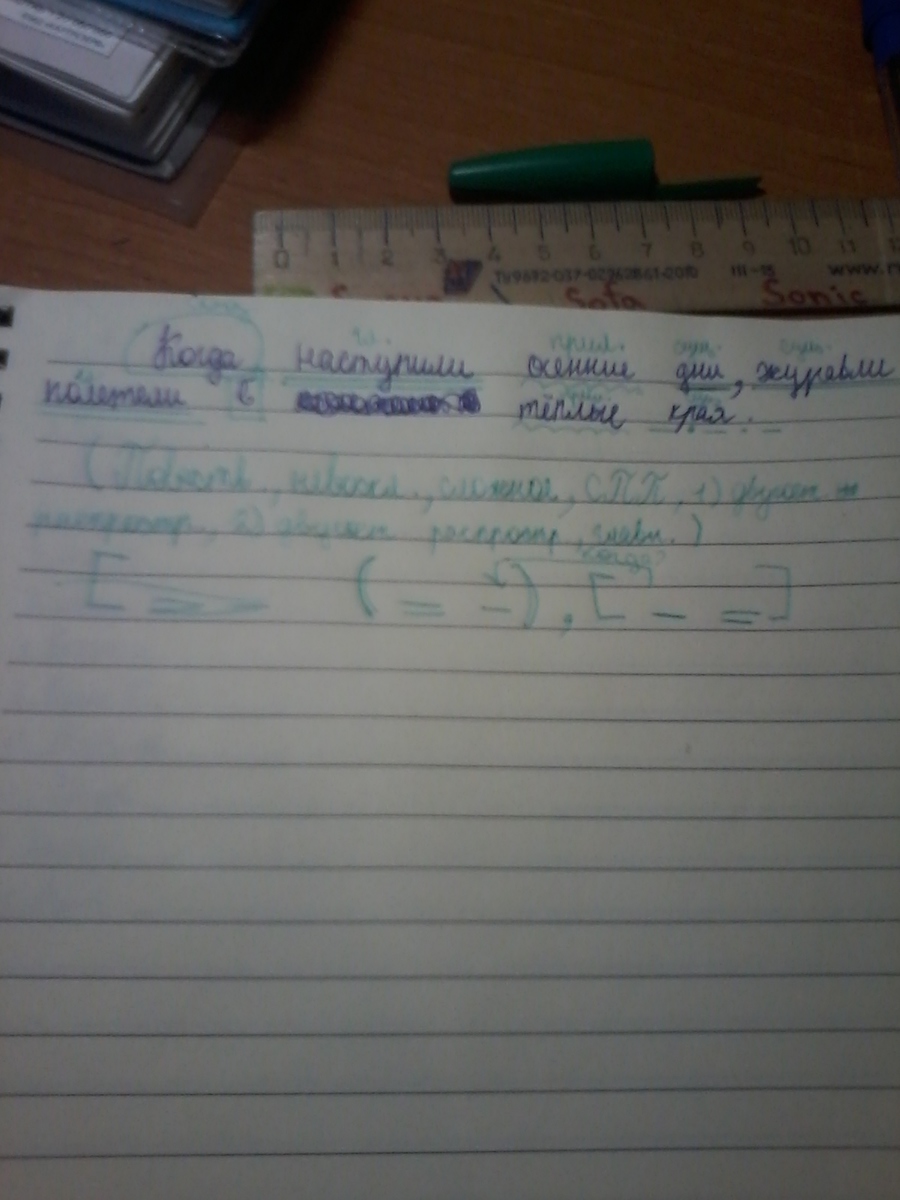 0 1 2 3 4 5 6 7 8 9 10 11
ТУ9692-037-02962861-2010 III-15 www.
Sofa Sonic
гл. прил. сущ. сущ.
Когда наступили осенние дни, журавли
гл.
полетели в тёплые края.
(Повеств., невоскл., сложное, СПП, 1) двусост.
распростр., 2) двусост. распростр., главн.)
когда?
[ = ( = - ), [ - = ]